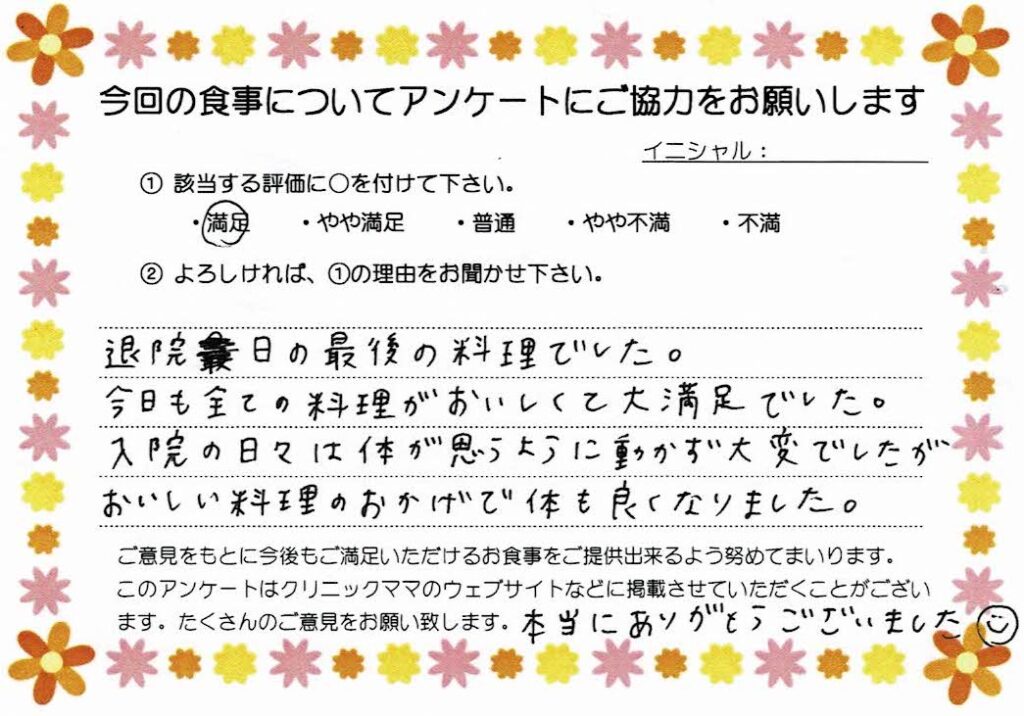 今回の食事についてアンケートにご協力をお願いします
イニシャル：
① 該当する評価に〇を付けて下さい。
・満足 ・やや満足 ・普通 ・やや不満 ・不満
② よろしければ、①の理由をお聞かせ下さい。
退院日の最後の料理でした。
今日も全ての料理がおいしくて大満足でした。
入院の日々は体が思うように動かず大変でしたが
おいしい料理のおかげで体も良くなりました。
ご意見をもとに今後もご満足いただけるお食事をご提供出来るよう努めてまいります。
このアンケートはクリニックママのウェブサイトなどに掲載させていただくことがござい
ます。たくさんのご意見をお願い致します。本当にありがとうございました